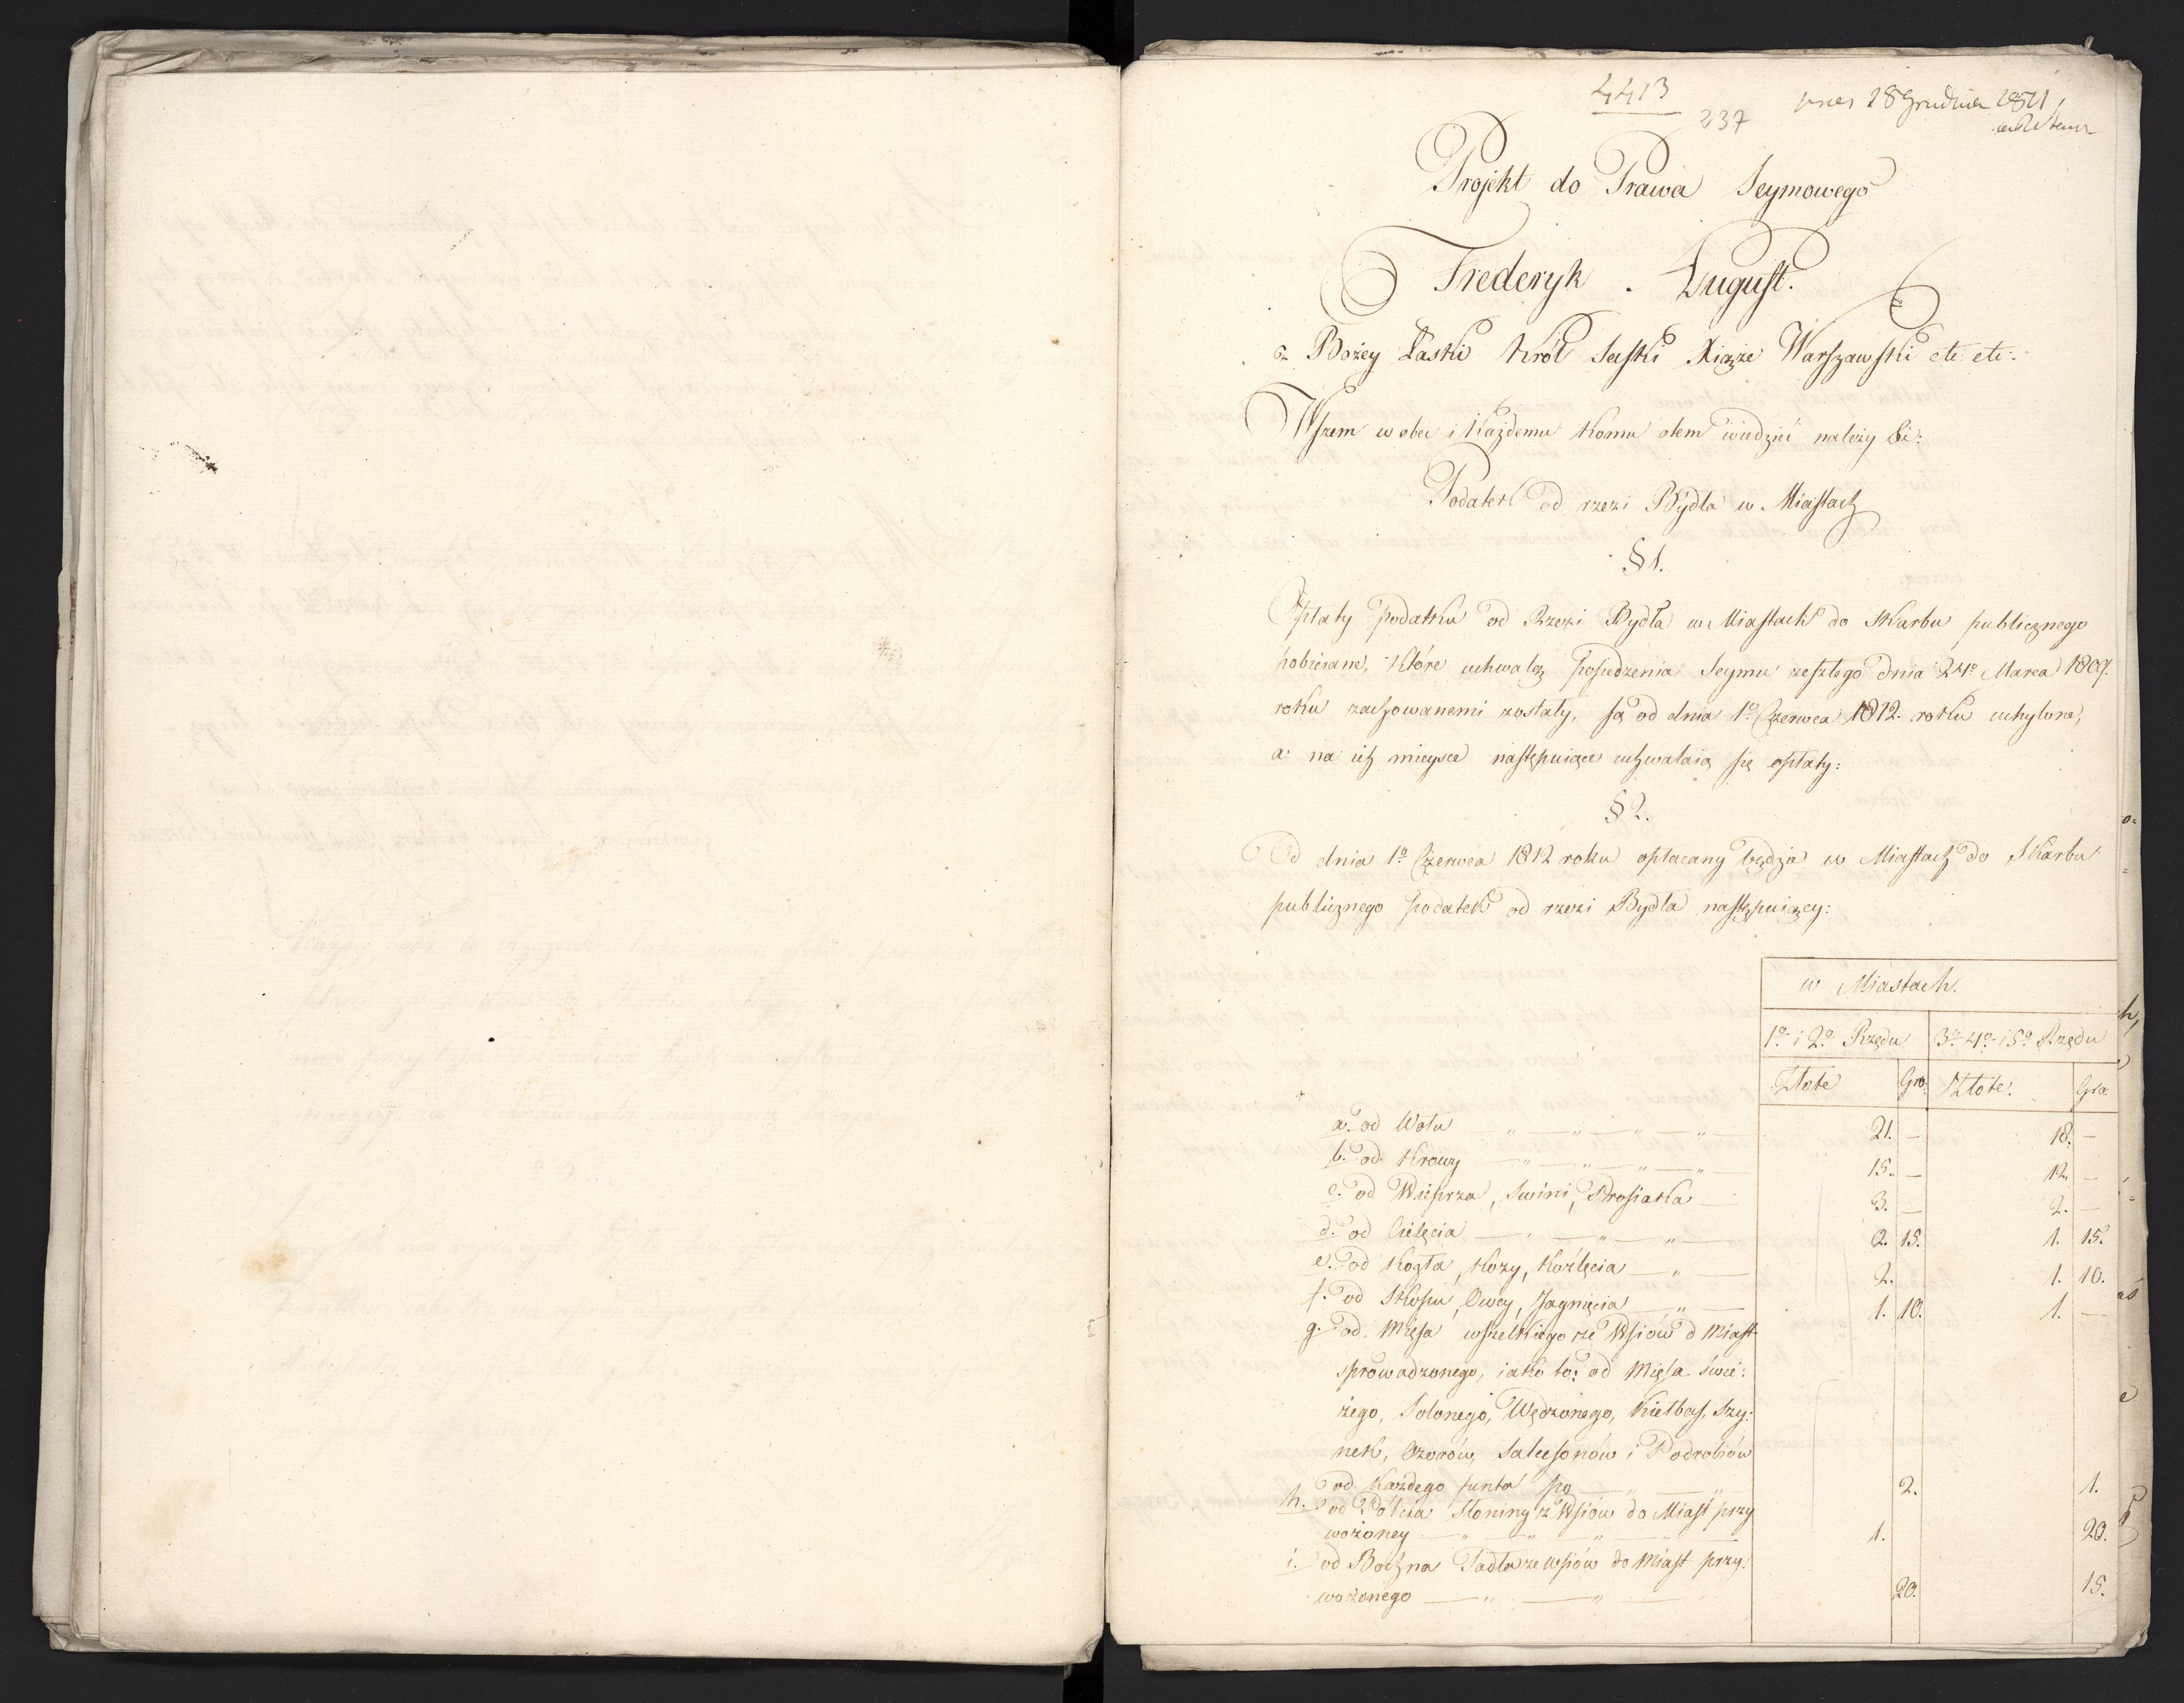 4413
237
18 Grudnia 1811
Projekt do Prawa Seymowego
Frederyk August.
z Bożey Łaski Król Saski Xiąże Warszawski etc etc:
Wszem wobec i Każdemu Komu otem wiedzieć należy &c:
Podatek od rzezi Bydła w Miastach
§ 1.
Opłaty podatku od Rzezi Bydła w Miastach do Skarbu publicznego
pobierane, które uchwałą posiedzenia Seymu zeszłego dnia 24o Marca 1809.
roku zachowanemi zostały, są od dnia 1o Czerwca 1812. roku uchylone,
a na ich mieysce następuiące uchwalaią się opłaty:
§ 2.
Od dnia 1o Czerwca 1812 roku opłacany będzie w Miastach do Skarbu
publicznego podatek od rzezi Bydła następuiący:
w Miastach.
1o i 2o Rzędu 3o 4o i 5o Rzędu
Złote Gro. Złote. Gro.
a. od Wołu — " — " — " — " — 21. — 18. —
b. od Krowy — " — " — " — " — 15. — 12. —
c. od Wieprza, Swini, Prosiatka — 3. — 2. —
d. od Cielęcia — " — " — " — 2. 15. 1. 15.
e. od Kozła, Kozy, Koźlęcia — " — 2. 1. 10.
f. od Skopu, Owcy, Jagnięcia — " — 1. 10. 1. —
g. od Mięsa wszelkiego ze Wsiów d Miast
sprowadzonego, iako to: od Mięsa świe:
żego, Solonego, Wędzonego, Kiełbas, Szy:
nek, Ozorów, Salcesonów i Podrobiów
od Każdego funta po — " — " 2. 1.
h. od Połcia Słoniny z Wsiów do Miast przy
wożoney — " — " — " — " — 1. 20.
i. od Bochna Sadła ze wsiów do Miast przy:
wożonego — " — " — 20. 15.